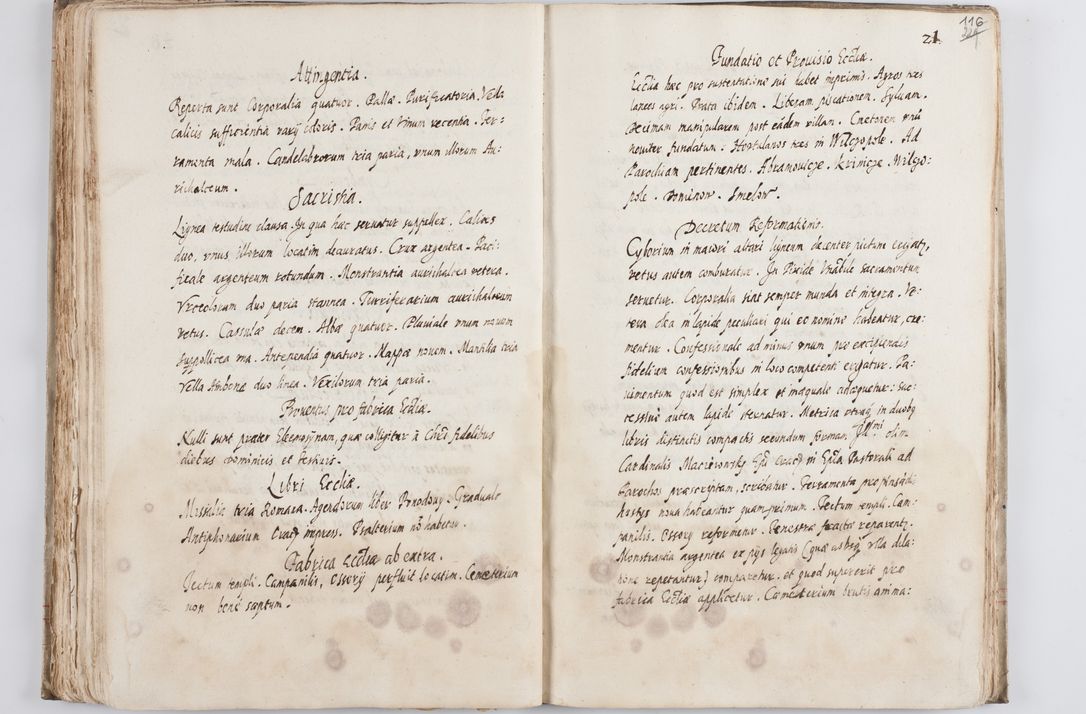 Attingentia.
Reperta sunt Corporalia quatuor. Pallæ. Purificatoria. Vela
calicis sufficientia varij coloris. Panis et vinum recentia. Fer-
ramenta mala. Candelabrorum tria paria, vnum illorum Au:
richalceum.
Sacristia.
Lignea testudine clausa. In qua hæc seruatur suppellex. Calices
duo, vnus illorum locatim deauratus. Crux argentea. Paci-
ficale argenteum rotundum. Monstrantia aurichalcea vetera.
Vrceolorum duo paria stannea. Turriferarium aurichalceum
vetus. Casulæ decem. Albæ quatuor. Pluviale vnum nouum
suppellicea Antependia quatuor. Mappæ nouem. Mantilia tria
Vella Ambonæ duo linea. Vexilorum tria paria.
Prouentus pro fabrica Eccliæ.
Nulli sunt præter Eleemosynam, quæ colligitur à fidelibus
diebus dominicis et festiuis.
Libri Eccliæ.
Missalia tria Romana. Agendorum liber Graduale
Antiphonarium Crac impress. Psalterium nō habetur.
Fabrica Eccliæ ab extra.
Tectum templi. Campanilis, Ossorij perfluit locatim. Cemeterium
non bene septum.
21
116
Fundatio et Prouisio Eccliæ.
Ecclia hæc pro sustentatione sui habet inprimis. Agros tres
laneos agri. Prata ibidem. Liberam piscationem. Syluam.
Decimam manipularem post eādem villam. Cmetonem
nouiter fundatum: Hortulanos tres in Wilczopole. Ad
Parochiam pertinentes. Abramowice. Krzinicze. Wilczo:
pole. Dominow. Smelow.
Decretum Reformationis.
Cyborium in maiori altari ligneum decenter pictum erigat,
vetus autem comburatur. In Pixide Vnābile sacramentum
seruetur. Corporalia sint semper munda et integra. Ve:
tera olea in lapide peculiari qui eo nomine habeatur, cre:
mentur. Confessionale ad minus vnum pro excipiendis
fidelium confessionibus in loco competenti erigatur. Pa:
uimentum quod est simplex et inæquale adæquetur: suc:
cessiuè autem lapide sternatur. Metrica vtraq in duobq
libris distinctis compactis secundum formam olim
Cardinalis Macieiowsky Epi Crac in Epla Pastorali ad
Parochos præscriptam, scribatur. Ferramenta pro pinsādis
hostys noua habeantur quamprimum. Tectum templi. Cam-
panilis. Ossorij reformetur. Fenestræ fractæ reparentr.
Monstrantia argentea ex pijs legatis (quæ absq vlla dila:
tione repetantur) comparetur. et quod supererit pro
fabrica Eccliæ applicetur. Cæmeterium brutis anima: